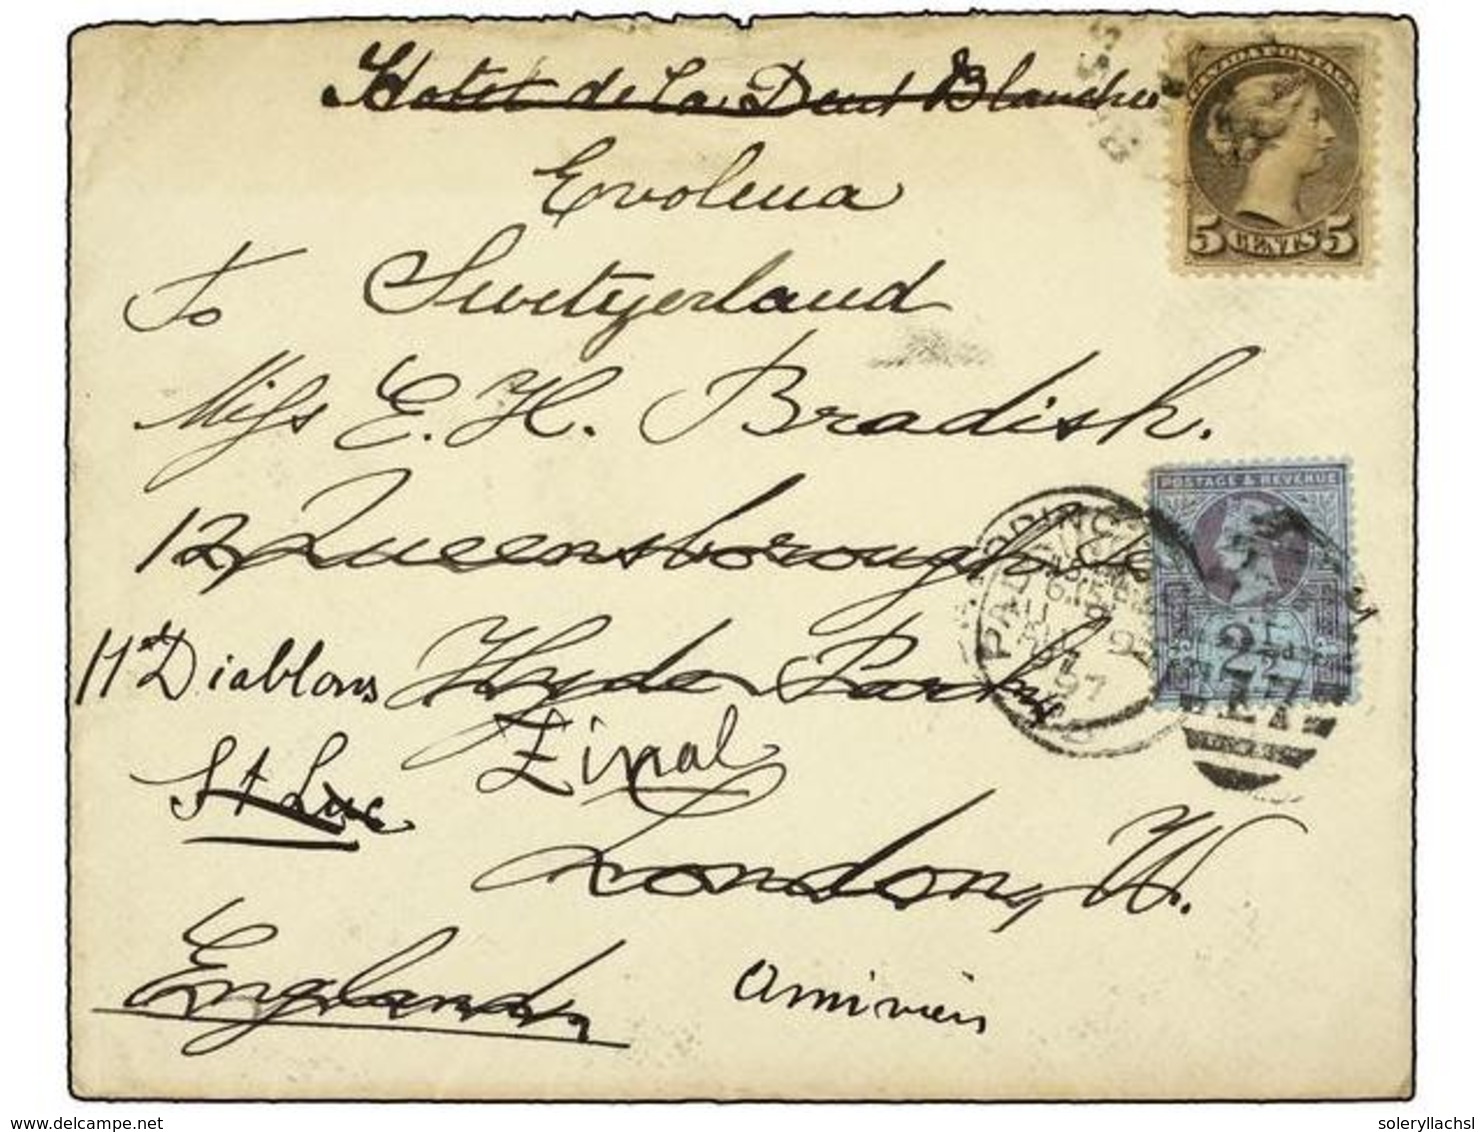 Hotel de la Dent Blanche
CANADA POSTAGE
5 CENTS 5
Evolena
To Switzerland
Miss E. H. Bradish.
12 Queensborough
POSTAGE & REVENUE
PADDINGTON
97
2½d
Htl Diablons Hyde Park
St Luc Zinal
London, W.
England
Anniviers
www.delcampe.net
soleryllachsl